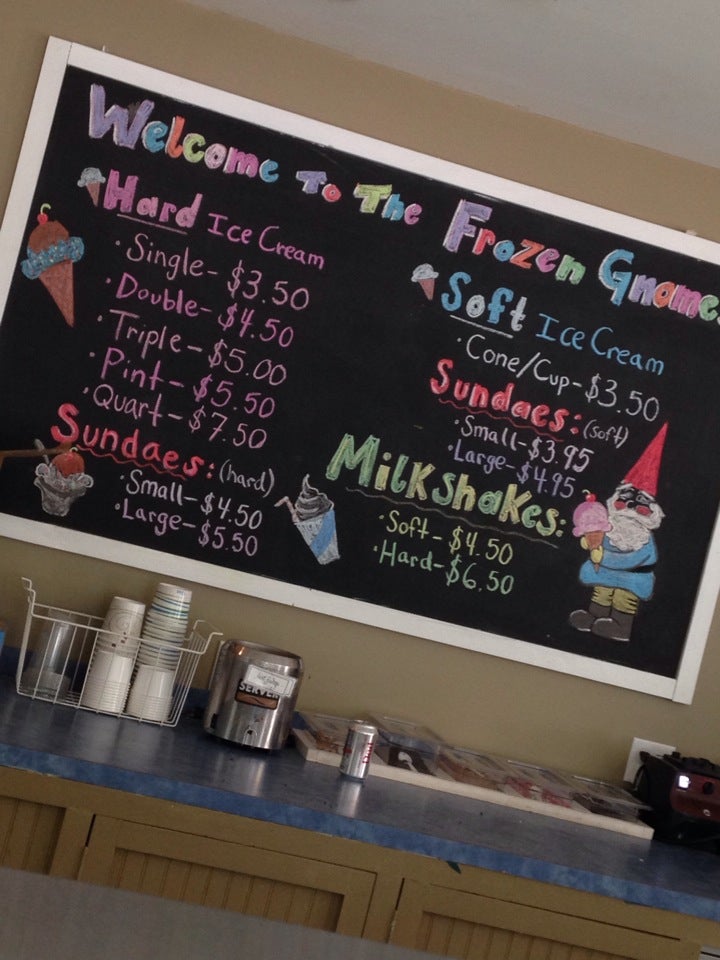 Welcome To The Frozen Gnome
Hard Ice Cream
· Single - $3.50
· Double - $4.50
· Triple - $5.00
· Pint - $5.50
· Quart - $7.50
Sundaes: (hard)
· Small - $4.50
· Large - $5.50
Soft Ice Cream
· Cone/Cup - $3.50
Sundaes: (soft)
· Small - $3.95
· Large - $4.95
Milkshakes:
· Soft - $4.50
· Hard - $6.50
SERVER